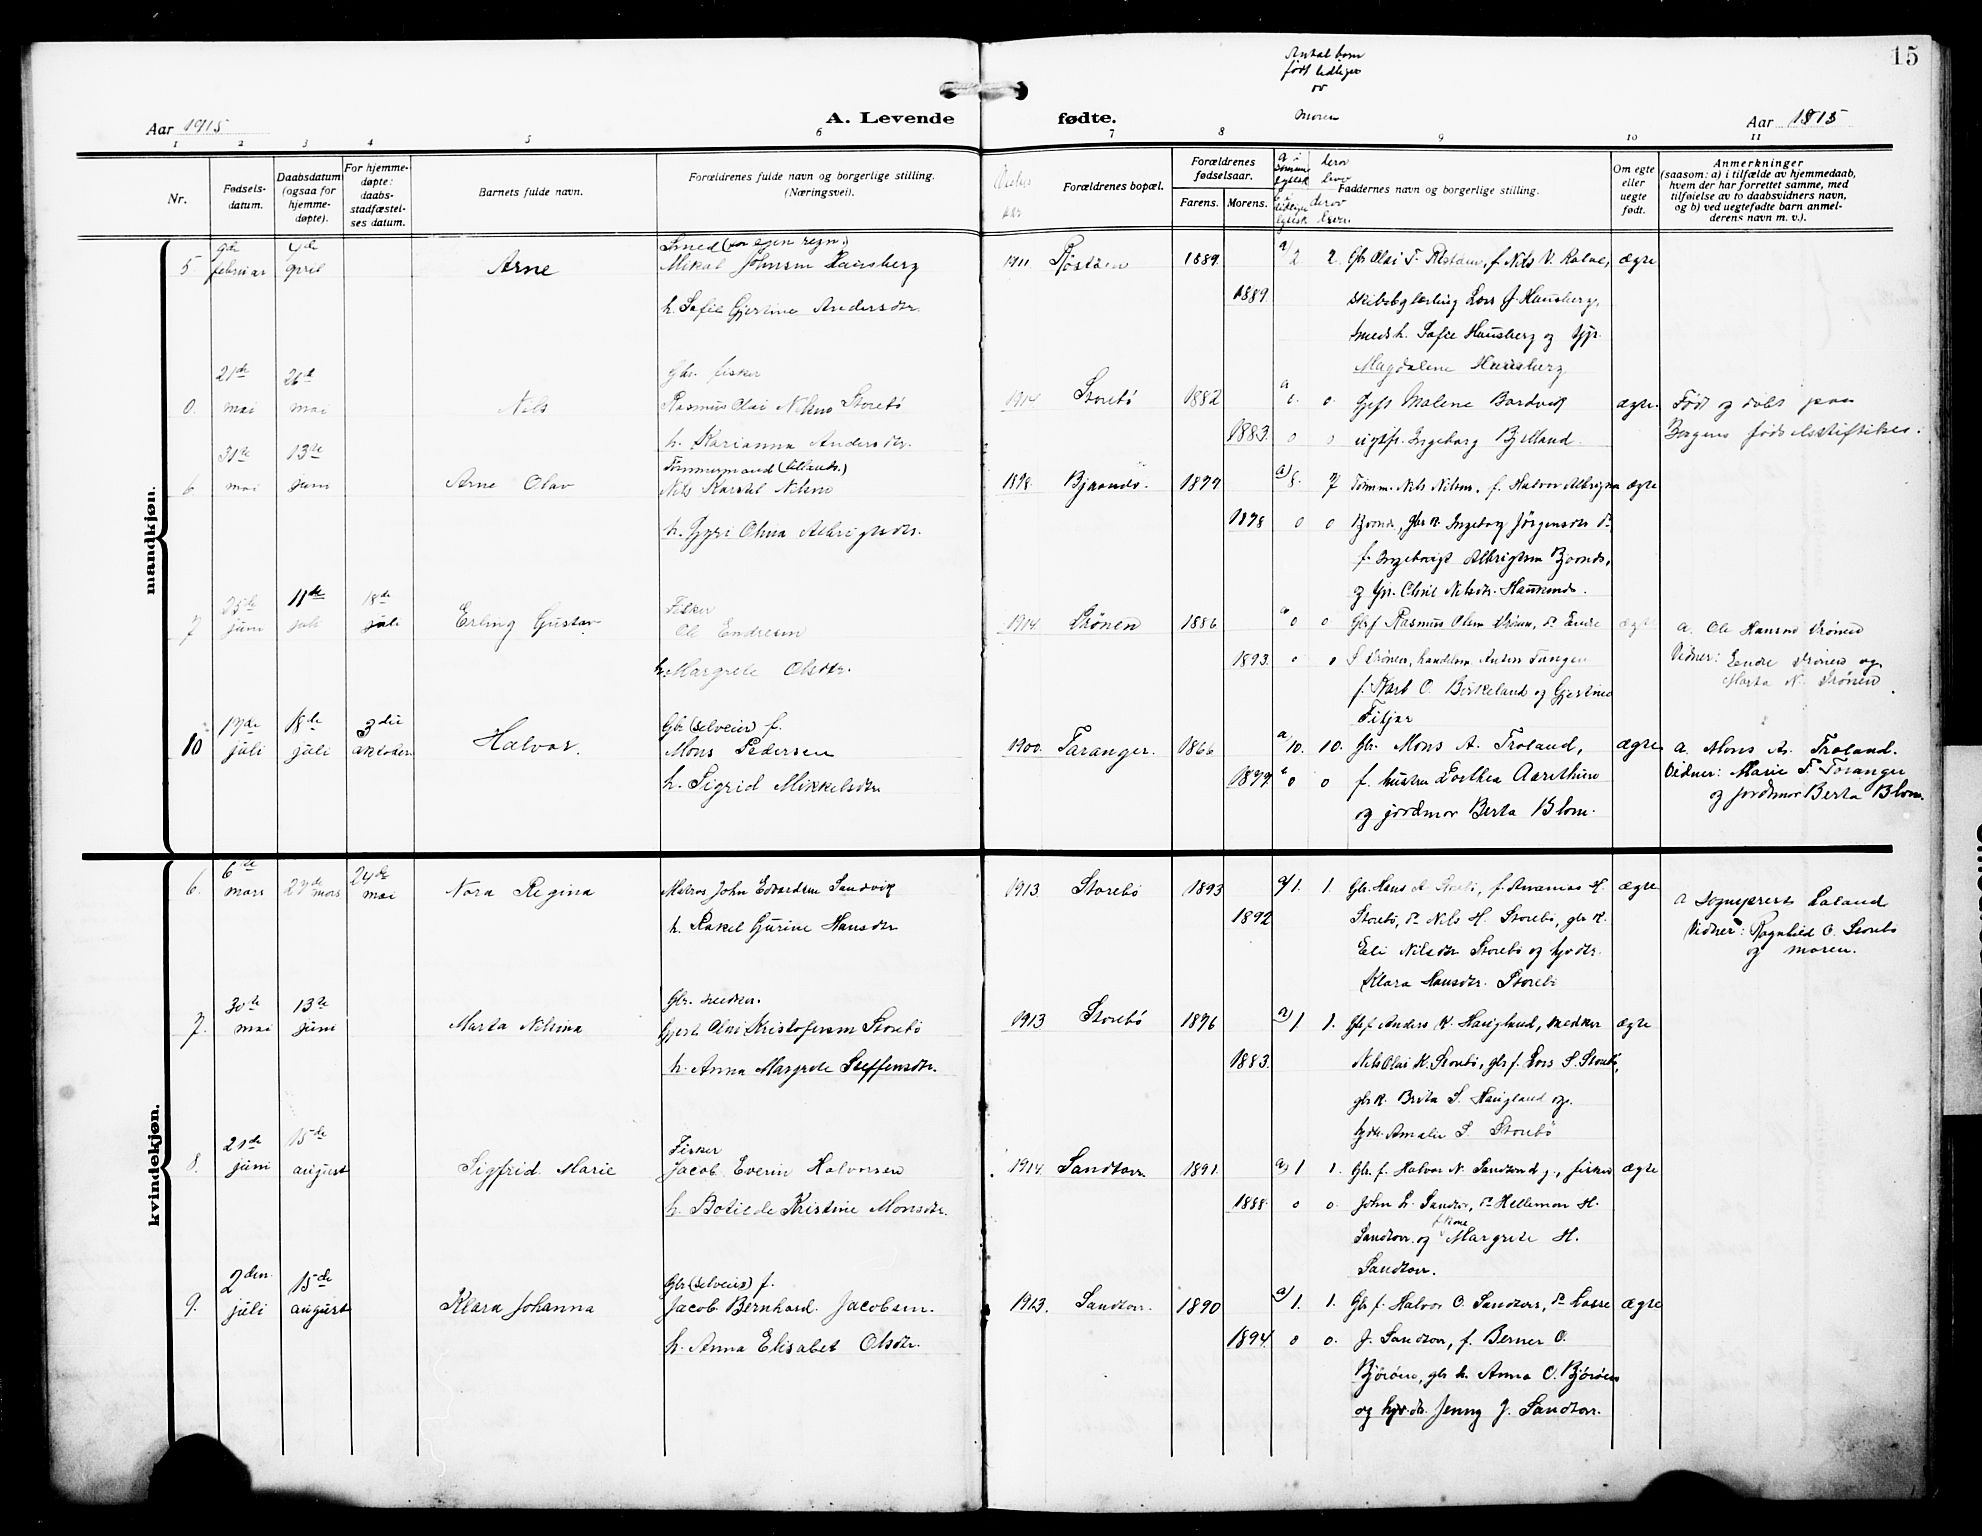 15
Antal barn
født tidliger
av
Moren
Aar 1915
A. Levende fødte.
Aar 1915
1 2 3 4 5 6 7 8 9 10 11
Nr.
Fødsels-
datum.
Daabsdatum
(ogsaa for
hjemme-
døpte).
For hjemme-
døpte:
daabs-
stadfæstel-
ses datum.
Barnets fulde navn.
Forældrenes fulde navn og borgerlige stilling.
(Næringsvei).
Forældrenes bopæl.
Forældrenes
fødselsaar.
Farens. Morens.
Faddernes navn og borgerlige stilling.
Om egte
eller
uegte
født.
Anmerkninger
(saasom: a) i tilfælde av hjemmedaab,
hvem der har forrettet samme, med
tilføielse av to daabsvidners navn,
og b) ved uegtefødte barn anmel-
derens navn m. v.).
mandkjøn.
5 9de februar 4de april Arne
Smed (for egen regn.)
Mikal Johnsen Hausberg
h. Sofie Gjertine Andersdtr.
1911 Røstøen 1889 1889 a) 2 2.
Smedsh. Sofie Hausberg og
Magdalene Hausberg
ægte
0. 21de mai 26de mai Nils
Gbr. fisker
Rasmus Olai Nilsen Storebø
h. Karianna Andersdtr.
1914 Storebø 1882 1883. a 0. 0 0 0
Gjeft Malene Bardvik
ugift Ingeborg Bjelland.
ægte.
Født og døbt paa
Bergens fødselsstiftelse.
6 31te mai 13de juni Arne Olav
Tømmermand (tillands.)
Nils Karstel Nilsen
h. Gyri Olina Albrigtsdtr.
1898. 1877 1878 a) 8. 7 0 0
Tømm. Nils Nilsen, f. Halvor Albrigtsen
gbr k. Ingeborg Jørgensdtr
f. Ingebrigt Albrigtsen
ægte
7 25de juni 11de juli 18de juli Erling Gustav
Fisker
Ole Endresen
h. Margrete Olsdtr.
1914 Drønen 1886 1893. a 0 0. 0 0
Gbrf Rasmus Olsen Drønen,
S Drønen, handelsm. Anders Tangen
O. Birkeland og Gjertine
Fitjar
ægte
a. Ole Hansen Drønen
Vidner: Endre Drønen og
Marta N. Drønen
10 17de juli 18de juli 3die oktober Halvor.
Gbr (selveier) f.
Mons Pedersen
h. Sigrid Mikkelsdtr
1900. Taranger. 1866 1877 a 10. 10. 0 0
Gbr. Mons A. Troland,
f. hustru Dorthea Aarsthun
og jordmor Berta Blom.
ægte
a. Mons A. Troland.
Vidner: Marie T. Toranger
og jordmor Berta Blom.
kvindekjøn.
6. 6te mars 27de mars 24de mai Nora Regina
Matros John Edvardsen Sandvik
h. Rakel Gurine Hansdtr
1913. Storebø 1893 1892 a) 1. 1.
Gbr. Hans A Storebø, f. Ananias H.
Storebø, Nils H. Storebø, gbr k.
Eli Nilsdtr Storebø og
Klara Hansdtr. Storebø
ægte
a Sogneprest Løland
Vidner: Ragnhild O. Storebø
og moren.
7. 30te mai 13de juni Marta Nilsina
Gbr. snedker.
Gjert Olai Kristofersen Storebø
h. Anna Margrete Steffensdtr.
1913 Storebø 1876 1883. a) 1 1.
Gbf Anders K. Haugland, snedker
Nils Olai K. Storebø, gbr f. Lars S. Storebø,
gbr k. Brita S. Haugland og
Amalie S. Storebø
ægte
8. 21de juni 15de august Sigfrid Marie
Fisker
Jacob Everin Halvorsen
h. Botilde Kristine Monsdtr.
1914. Sandtorv 1891. 1888. a) 1 1. 0 0.
Gbr f. Halvor N. Sandtorv d y., fisker
John L. Sandtorv, Helleman H.
Sandtorv. og f.kone Margrete H.
Sandtorv.
ægte
9. 2den juli 15de august Klara Johanna
Gbr (selveier) f.
Jacob Bernhard Jacobsen.
h. Anna Elisabet Olsdtr.
1913. Sandtorv. 1890 1894. a) 1. 1. 0 0.
Gbr f. Halvor O. Sandtorv, Lasse
J. Sandtorv, f. Berner O.
Bjørøen, gbr k. Anna O. Bjørøen
og Jenny J. Sandtorv.
ægte